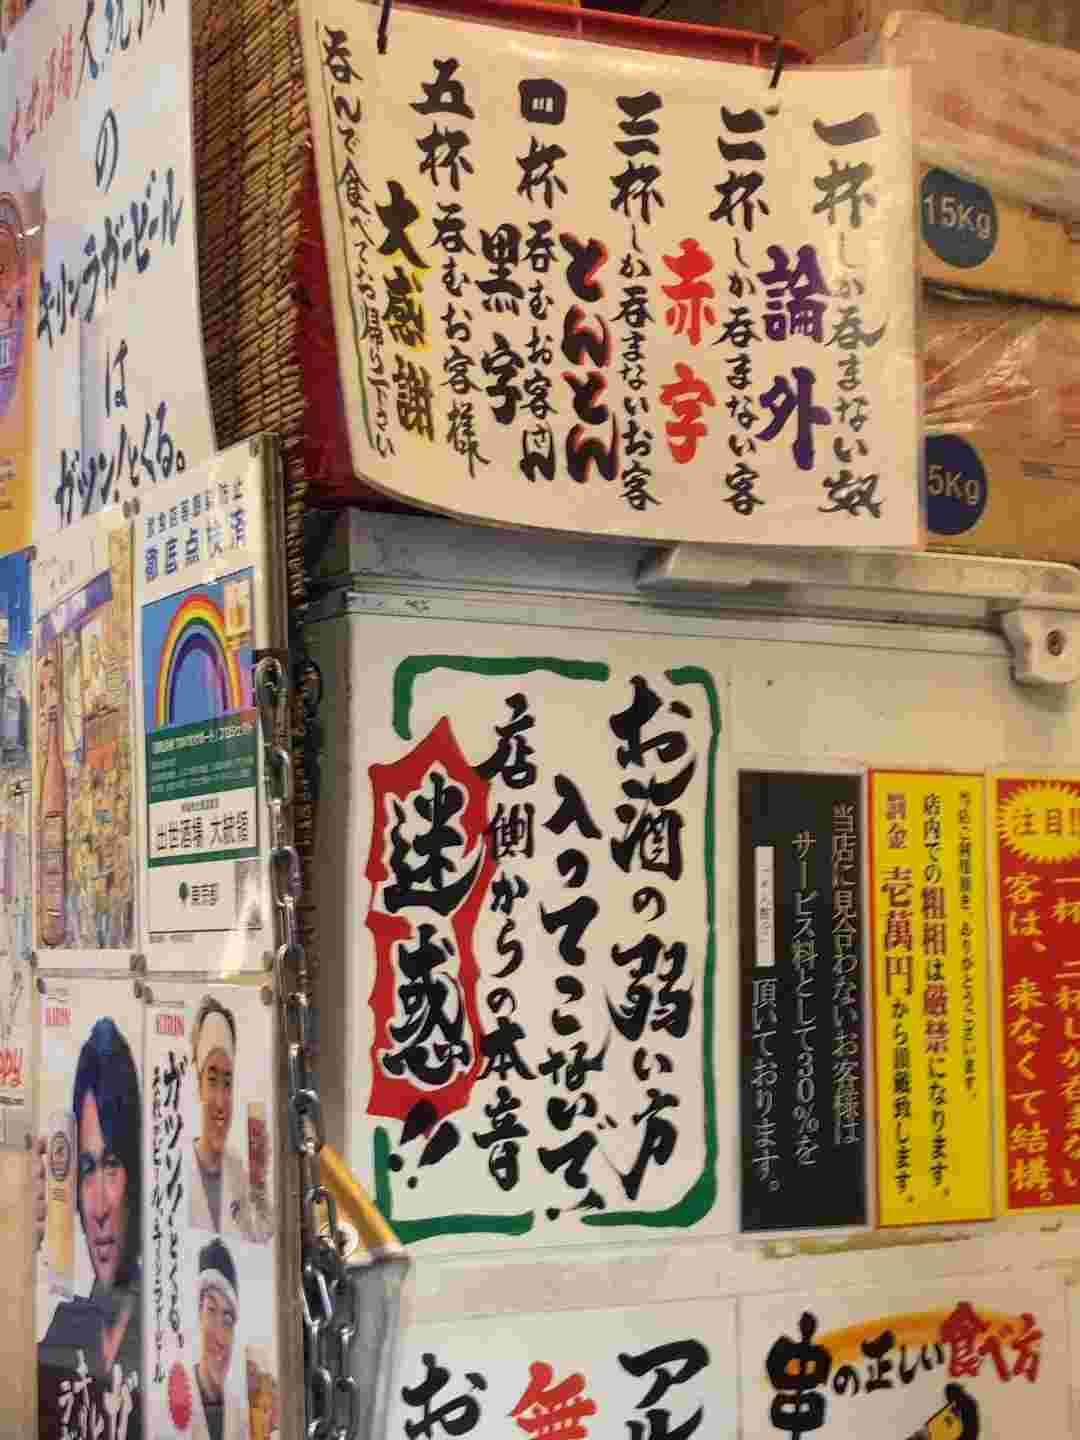 一杯しか呑まない奴
論外
二杯しか呑まない客
赤字
三杯しか呑まないお客
とんとん
四杯呑むお客さん
黒字
五杯呑むお客様
大感謝
呑んで食べてお帰り下さい
15Kg
5Kg
大統領
の
キリンラガービール
は
ガツン!とくる。
徹底点検済
出世酒場 大統領
東京都
お酒の弱い方
入ってこないで!!
店側からの本音
迷惑!!
当店に見合わないお客様は
サービス料として30%を
頂いております。
当店ご利用頂き、ありがとうございます。
店内での粗相は厳禁になります。
罰金 壱萬円から頂戴致します。
注目!!
一杯、二杯しか呑まない
客は、来なくて結構。
KIRIN
KIRIN
ガツン!とくる。
それがビール、キリンラガービール
アル
無
お
串の正しい食べ方